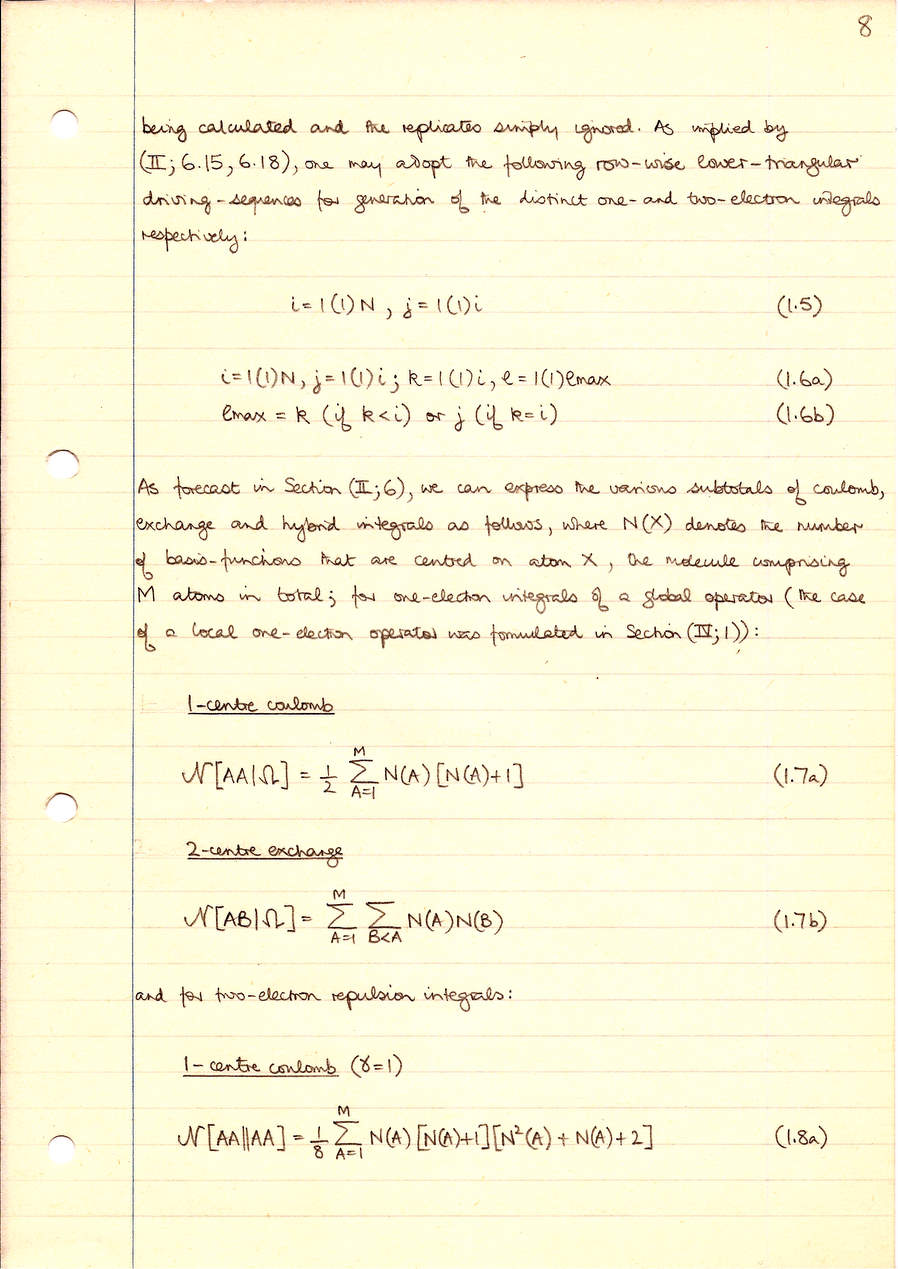 8
being calculated and the replicates simply ignored. As implied by
(II; 6.15, 6.18), one may adopt the following row-wise lower-triangular
driving-sequences for generation of the distinct one- and two-electron integrals
respectively:
i = 1(1)N , j = 1(1)i (1.5)
i = 1(1)N, j = 1(1)i ; k = 1(1)i, ℓ = 1(1)ℓmax (1.6a)
ℓmax = k (if k<i) or j (if k=i) (1.6b)
As forecast in Section (II;6), we can express the various subtotals of coulomb,
exchange and hybrid integrals as follows, where N(X) denotes the number
of basis-functions that are centred on atom X, the molecule comprising
M atoms in total; for one-electron integrals of a global operator (the case
of a local one-electron operator was formulated in Section (IV;1)):
1-centre coulomb
𝒩[AA|Ω] = 1/2 ∑_{A=1}^{M} N(A)[N(A)+1] (1.7a)
2-centre exchange
𝒩[AB|Ω] = ∑_{A=1}^{M} ∑_{B<A} N(A)N(B) (1.7b)
and for two-electron repulsion integrals:
1-centre coulomb (γ=1)
𝒩[AA||AA] = 1/8 ∑_{A=1}^{M} N(A)[N(A)+1][N²(A) + N(A)+2] (1.8a)